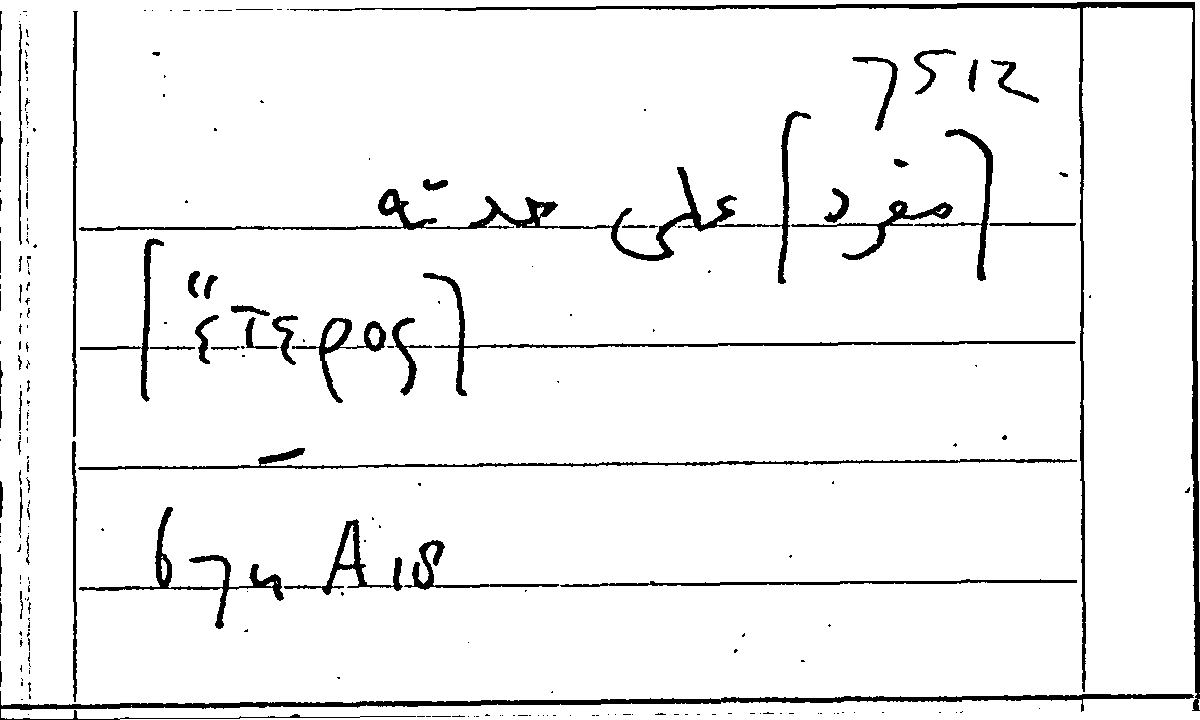 7512
[مفرد] على حدته
[ἕτερος]
–
674 A 18